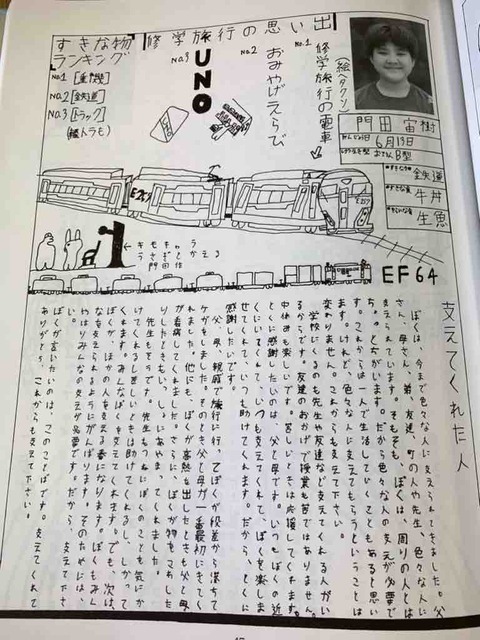 すきな物
ランキング
No.1 [重機]
No.2 [鉄道]
No.3 [トラック]
修学旅行の思い出
No.1
修学旅行の電車
No.2
おみやげえらび
No.3
UNO
UNO
門田宙樹
6月13日
B型
鉄道
牛丼
生魚
E257
E257
キモキャラ
うさぎとかえる
門田作
EF64
支えてくれた人
ぼくは、今まで色々な人に支えられてきました。父
さん、母さん、弟、友達、町の人や先生、色々な人に
支えられています。そもそも、ぼくは、周りの人とは
ちょっとちがいます。だから色々な人の支えが必要で
す。これからは一人で生活していくこともあると思い
ます。けれど、色々な人に支えてもらうということは
変わりません。これからも支えて下さい。
学校にくるのも先生や友達など支えてくれる人がい
るからです。友達のおかげで授業も苦ではありません。
中休みも楽しいです。苦しいときは応援してくれます。
とくに感謝したいのは、父と母です。いつもぼくの近
くにいてくれて、いつも支えてくれて、ぼくを楽しま
せてくれて、いつも助けてくれます。だから、とくに
感謝したいです。
父、母、親戚で旅行に行って、ぼくが段差から落ちて
ケガをしました。そのとき父と母が一番最初にきてく
れました。他にも、ぼくが高熱を出したときも父と母
が看病してくれました。さらに、ぼくが物をこわした
りしたときもいっしょにあやまってくれました。
先生もそうです。先生もつねにぼくのことを気にか
けてくれるし苦しいときは助けてくれるし、しかって
くれます。みんなぼくを支えてくれます。でも、次は、
ぼくがほかの人を支える番になります。ぼくもみん
なを支えられるようにがんばります。そのためには、
やはりみんなの支えが必要です。だから、支えて下さ
い。
ぼくが言いたいのは、このことばです。支えてくれて
ありがとう、これからも支えて下さい。